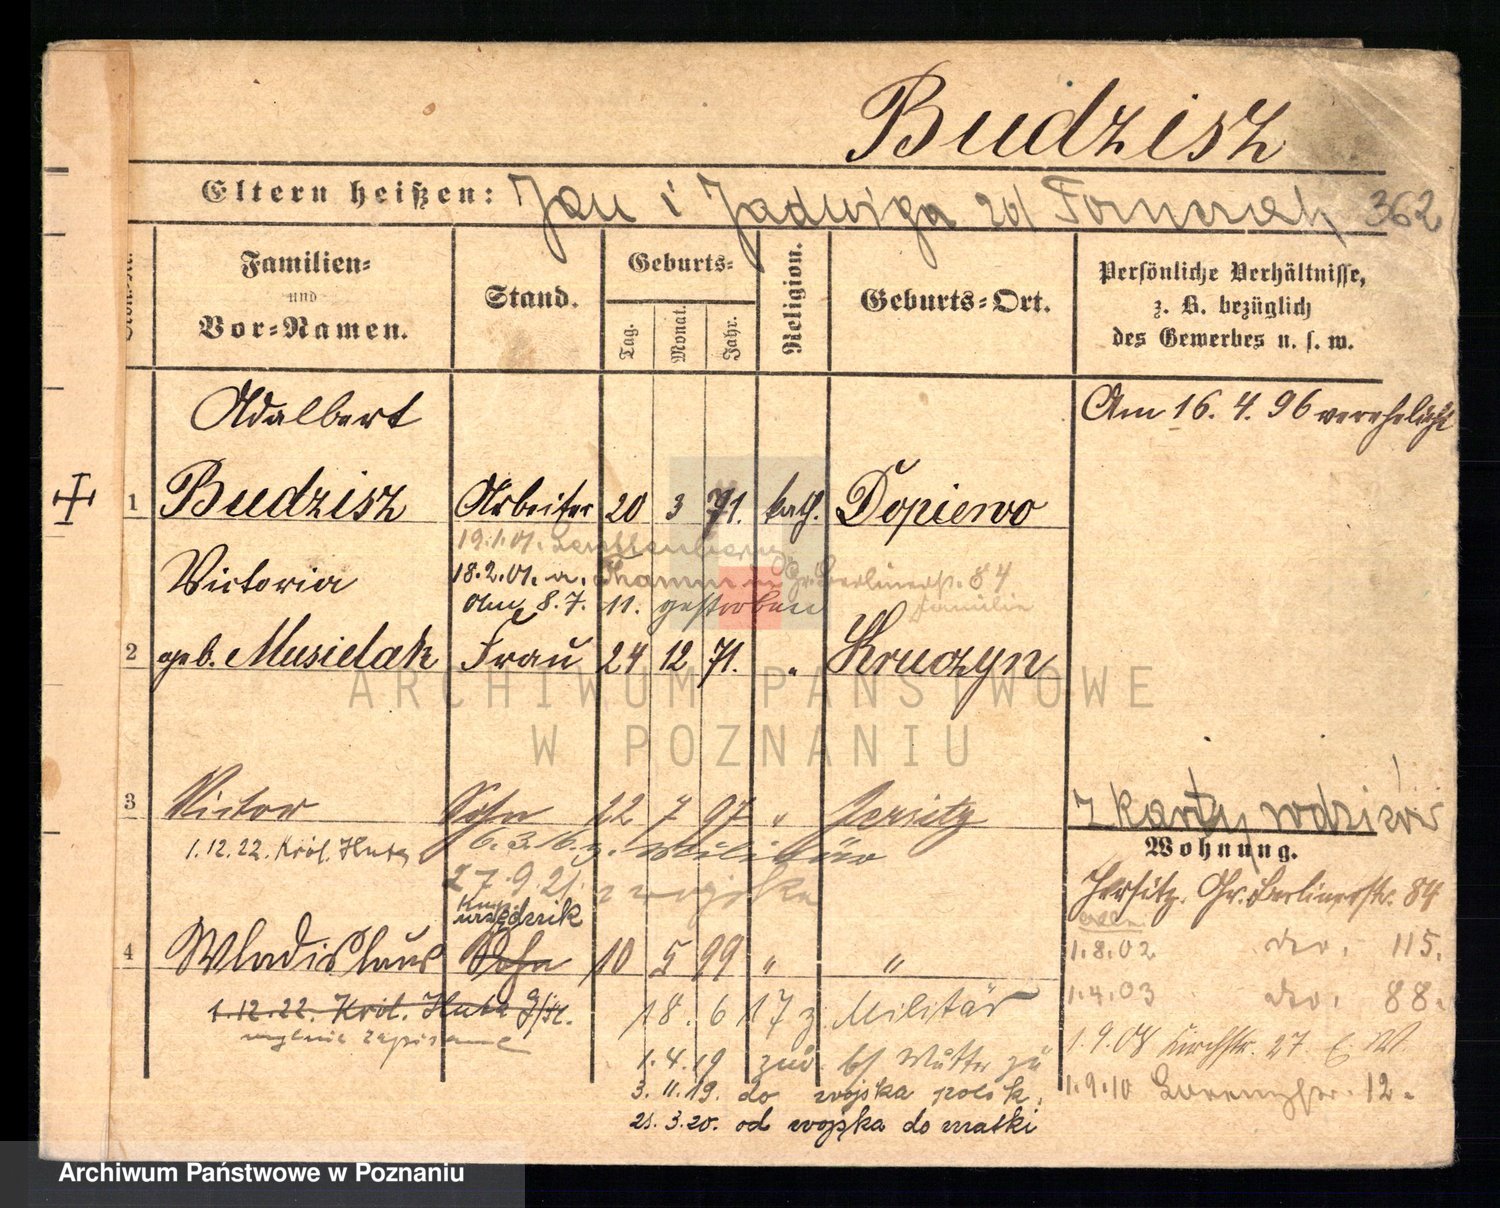 Budzisz
Eltern heißen: Jan i Jadwiga zd 362
Familien= und Vor=Namen.
Stand.
Geburts=
Tag. Monat. Jahr.
Religion.
Geburts=Ort.
Persönliche Verhältnisse,
z. B. bezüglich
des Gewerbes u. s. w.
Adalbert Am 16. 4. 96 verehelicht
1 Budzisz Arbeiter 20 3 71. kath. Dopiewo
19.1.01.
Victoria 18.2.01. a. Gr. Berlinerstr. 84
Am 8. 7. 11. gestorben Familie
2 geb. Musielak Frau 24 12 71. " Kruczyn
z karty rodziców
3 Victor Sohn 22 7 97 " Jersitz
Wohnung.
1.12.22. Król. Huta 6.3.16. z. Militär
27.9.21. z wojska
Jersitz. Gr. Berlinerstr. 84
urzędnik
4 Wladislaus Sohn 10 5 99 " "
1.8.02 do. 115.
1.4.03 do. 88.
1.12.22. Król. Huta G/Śl.
mylnie zapisane
18. 6 17 z. Militär
1.9.08 Kirchstr. 27.
1.4.19 zur. bei Mutter zu
1.9.10 12.
3.11.19. do wojska polsk.
21.3.20. od wojska do matki
ARCHIWUM PAŃSTWOWE
W POZNANIU
Archiwum Państwowe w Poznaniu